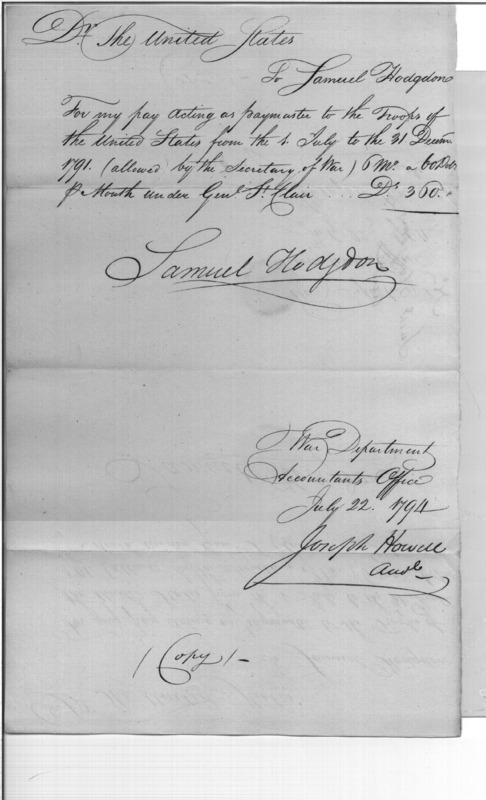 Dr. The United States
To Samuel Hodgdon
For my pay acting as paymaster to the Troops of
the United States from the 1. July to the 31 Decem
1791. (allowed by the Secretary of War) 6 Mo. a 60 Dols
P Month under Genl. St. Clair .... Ds. 360.
Samuel Hodgdon
War Department
Accountants Office
July 22. 1794
Joseph Howell
(Copy)